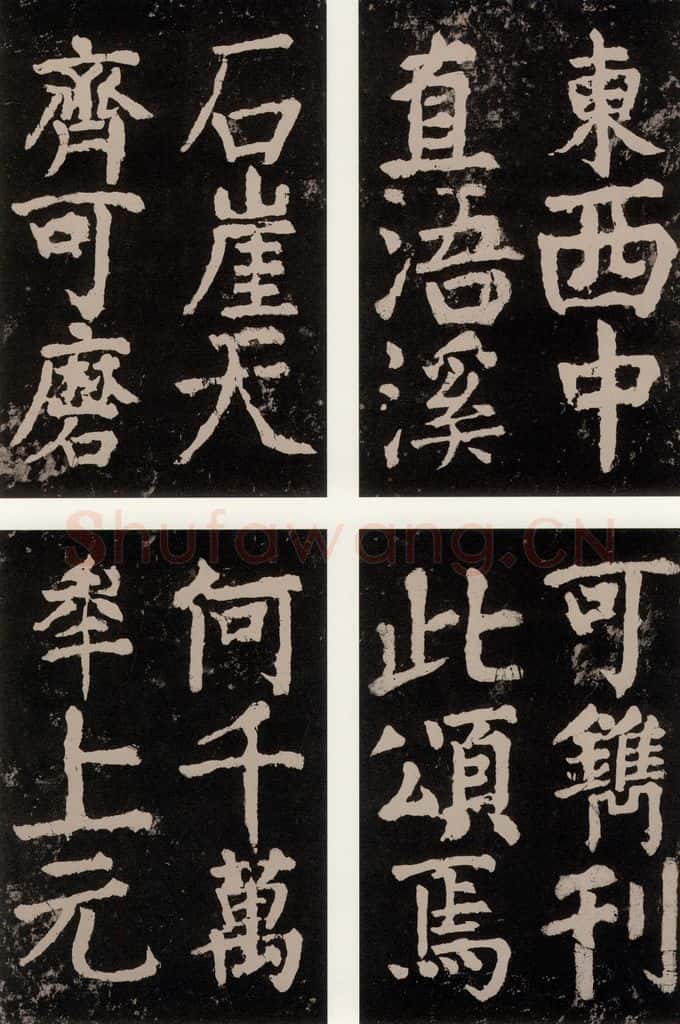 東西中
直浯溪
石崖天
齊可磨
Shufawang.CN
可鐫刊
此頌焉
何千萬
年上元